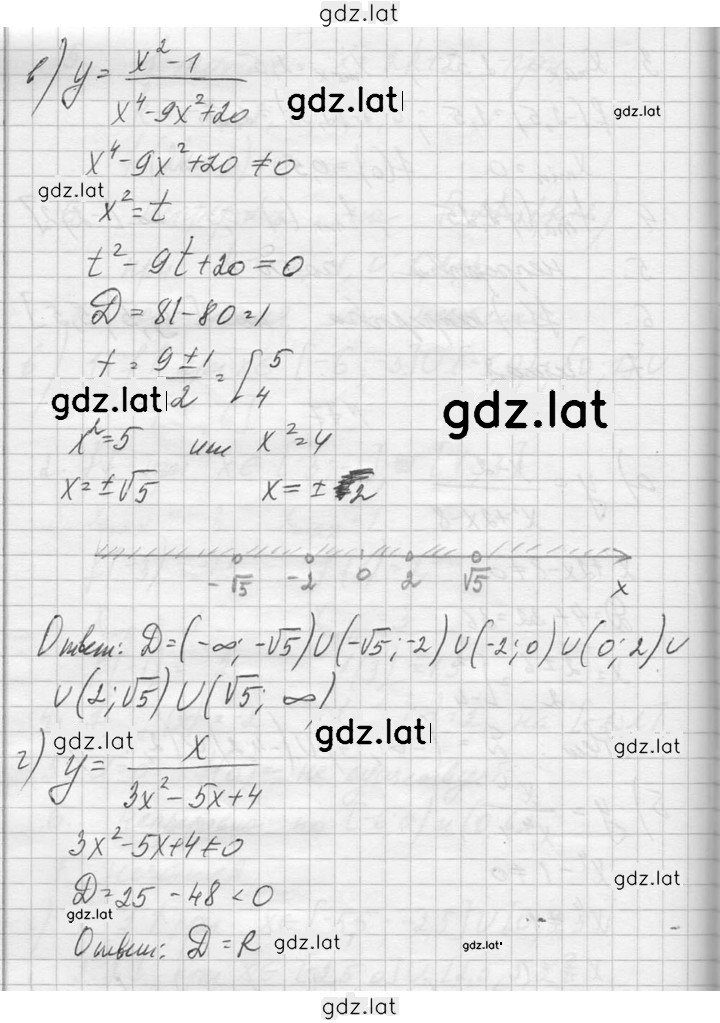 gdz.lat
в) y = x²-1 / x⁴-9x²+20
gdz.lat
gdz.lat
x⁴-9x²+20 ≠0
gdz.lat
x²=t
t²-9t+20=0
D=81-80=1
t = 9±1 / 2 = [ 5 4
gdz.lat
gdz.lat
x²=5 или x²=4
x=±√5 x=±2
-√5 -2 0 2 √5 x
Ответ: D=(-∞; -√5)∪(-√5;-2)∪(-2;0)∪(0;2)∪
∪(2;√5)∪(√5; ∞)
gdz.lat
gdz.lat
gdz.lat
г) y = x / 3x²-5x+4
3x²-5x+4≠0
gdz.lat
D=25-48<0
gdz.lat
Ответ: D=R
gdz.lat
gdz.lat
gdz.lat